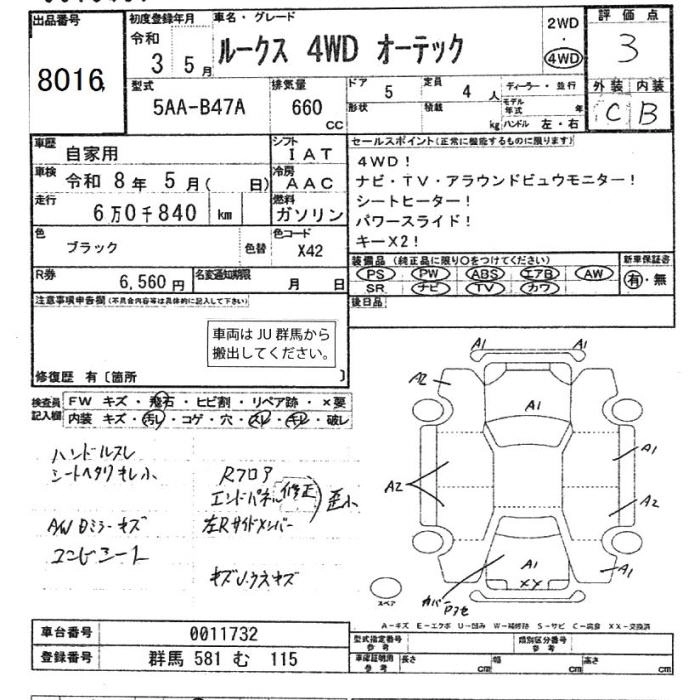 出品番号
8016
初度登録年月
令和
3 5月
車名・グレード
ルークス 4WD オーテック
2WD
4WD
評価点
3
外装 内装
C B
型式
5AA-B47A
排気量
660
CC
ドア
5
定員
4 人
形状
積載
kg
ディーラー・並行
モデル年式
年
ハンドル 左・右
車歴
自家用
シフト
IAT
車検
令和 8年 5月( 日)
冷房
AAC
走行
6万0千840 km
燃料
ガソリン
色
ブラック
色替
色コード
X42
R券
6,560円
名変通知期限
月 日
セールスポイント(正常に機能するものに限ります)
4WD!
ナビ・TV・アラウンドビュウモニター!
シートヒーター!
パワースライド!
キーX2!
装備品(純正品に限り〇をつけてください)
新車保証書
PS PW ABS エアB AW
有・無
SR ナビ TV カワ
後日品
注意事項申告欄(不具合内容等は具体的に記入して下さい)
車両はJU群馬から
搬出してください。
修復歴 有〔箇所 〕
検査員
記入欄
FW キズ・飛石・ヒビ割・リペア跡・×要
内装 キズ・汚レ・コゲ・穴・スレ・キレ・破レ
ハンドルスレ
シートヘタリキレ小
Rフロア
エンドパネル
修正
歪小
AWDミラーキズ
左Rサイドメンバー
コンビシート
キズU.ウスキズ
A1 A1
A2
A1
A1
A2
A2
A1
XX
A1
カバー
Pフセ
スペア
A1 A1
A-キズ E-エクボ U-凹み W-補修跡 S-サビ C-腐食 XX-交換済
車台番号
0011732
登録番号
群馬 581 む 115
型式指定番号
参考
類別区分番号
参考
車庫証明用
参考
長さ
cm
幅
cm
高さ
cm